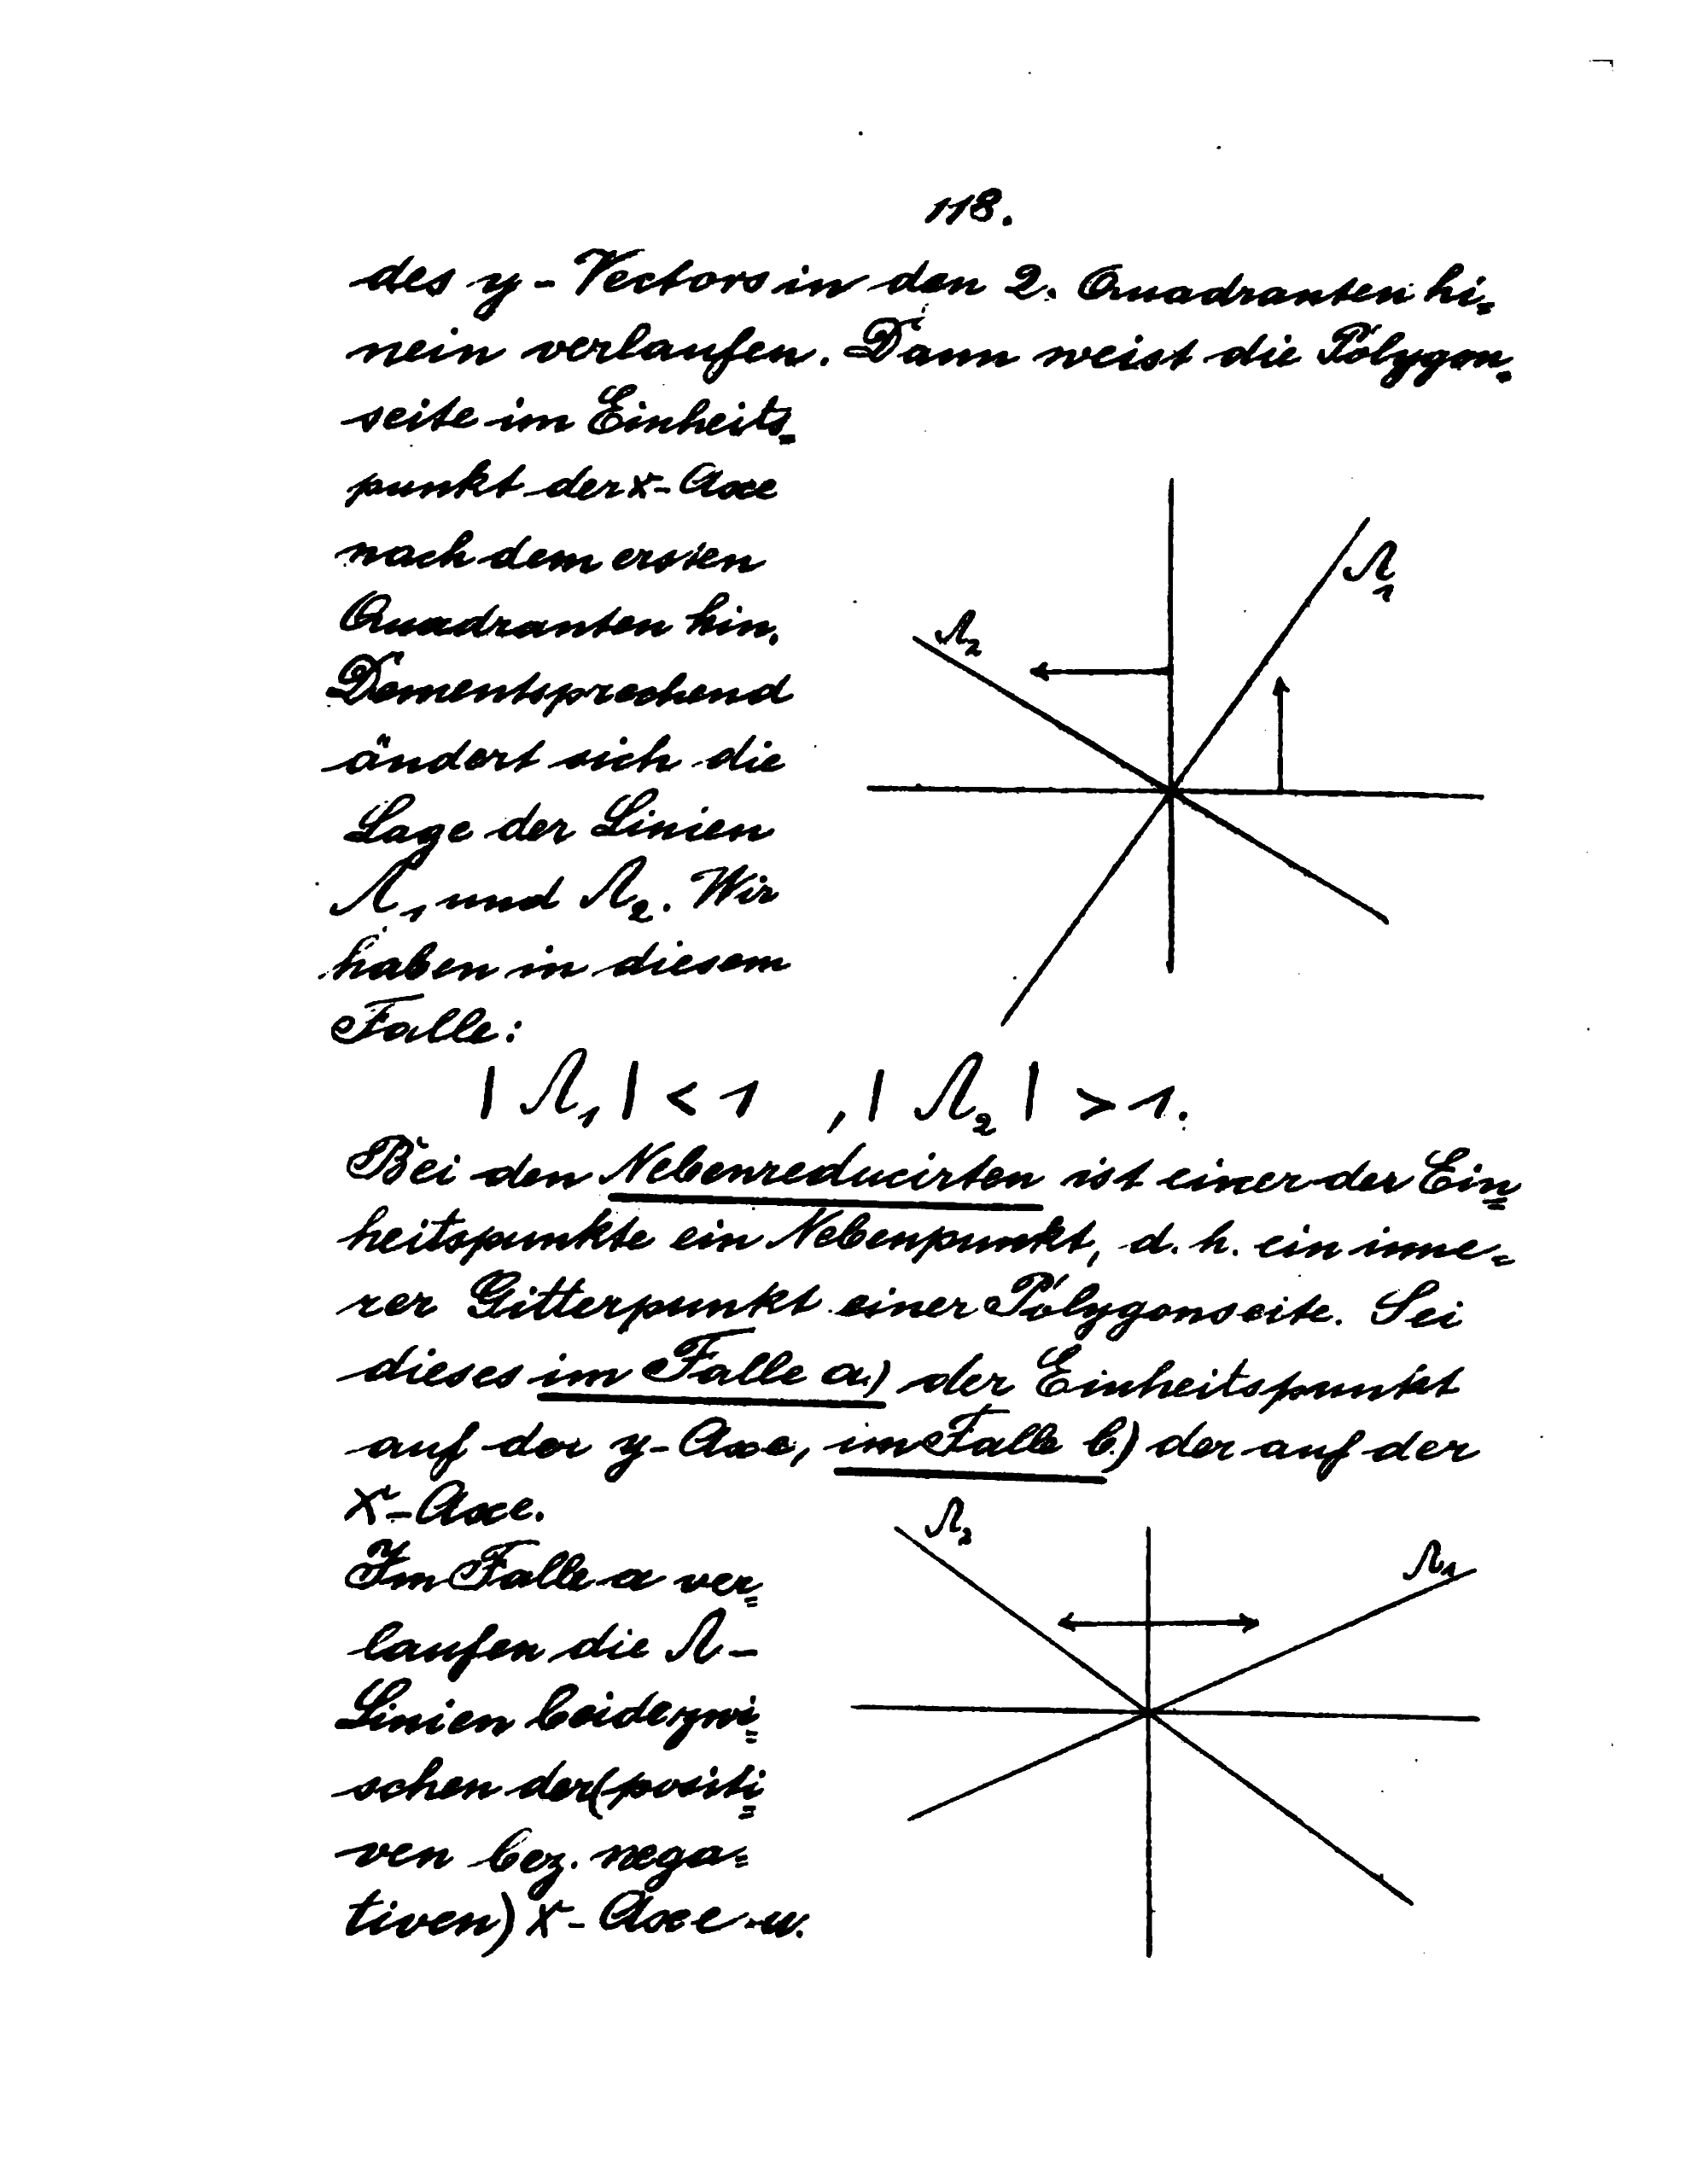 118.
des y-Vectors in den 2. Quadranten hi=
nein verlaufen. Dann weist die Polygon=
seite im Einheits=
punkt der x-Axe
nach dem ersten
Quadranten hin.
Dementsprechend
ändert sich die
Lage der Linien
Λ₁ und Λ₂. Wir
haben in diesem
Falle:
Λ₁
Λ₂
|Λ₁| < 1 , |Λ₂| > 1.
Bei den Nebenreducirten ist einer der Ein=
heitspunkte ein Nebenpunkt, d. h. ein inne=
rer Gitterpunkt einer Polygonseite. Sei
dieses im Falle a.) der Einheitspunkt
auf der y-Axe, im Falle b.) der auf der
x-Axe.
Im Falle a ver=
laufen die Λ-
Linien beide zwi=
schen der (positi=
ven bez. nega=
tiven) x-Axe u.
Λ₂
Λ₁